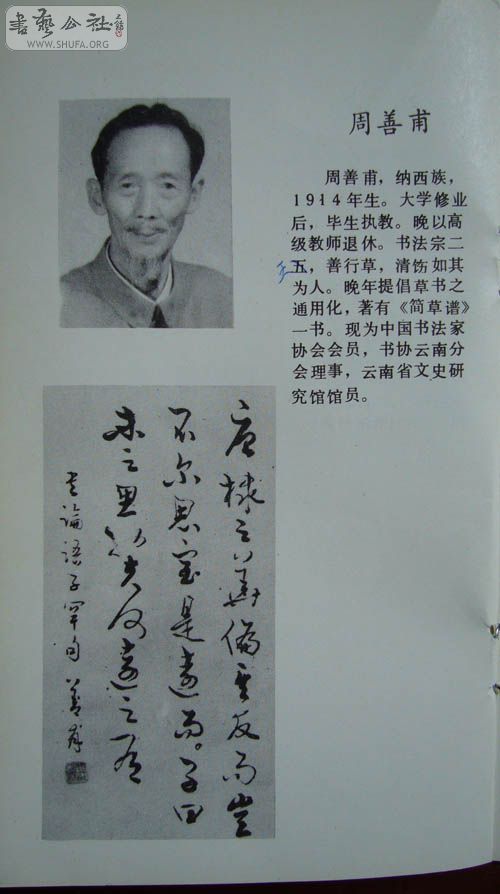 書藝公社
WWW.SHUFA.ORG
周善甫
周善甫，纳西族，
1914年生。大学修业
后，毕生执教。晚以高
级教师退休。书法宗二
王
五，善行草，清饬如其
为人。晚年提倡草书之
通用化，著有《简草谱》
一书。现为中国书法家
协会会员，书协云南分
会理事，云南省文史研
究馆馆员。
唐棣之華偏其反而豈
不尔思室是遠而。子曰
未之思也夫何遠之有
书論語子罕句 善甫